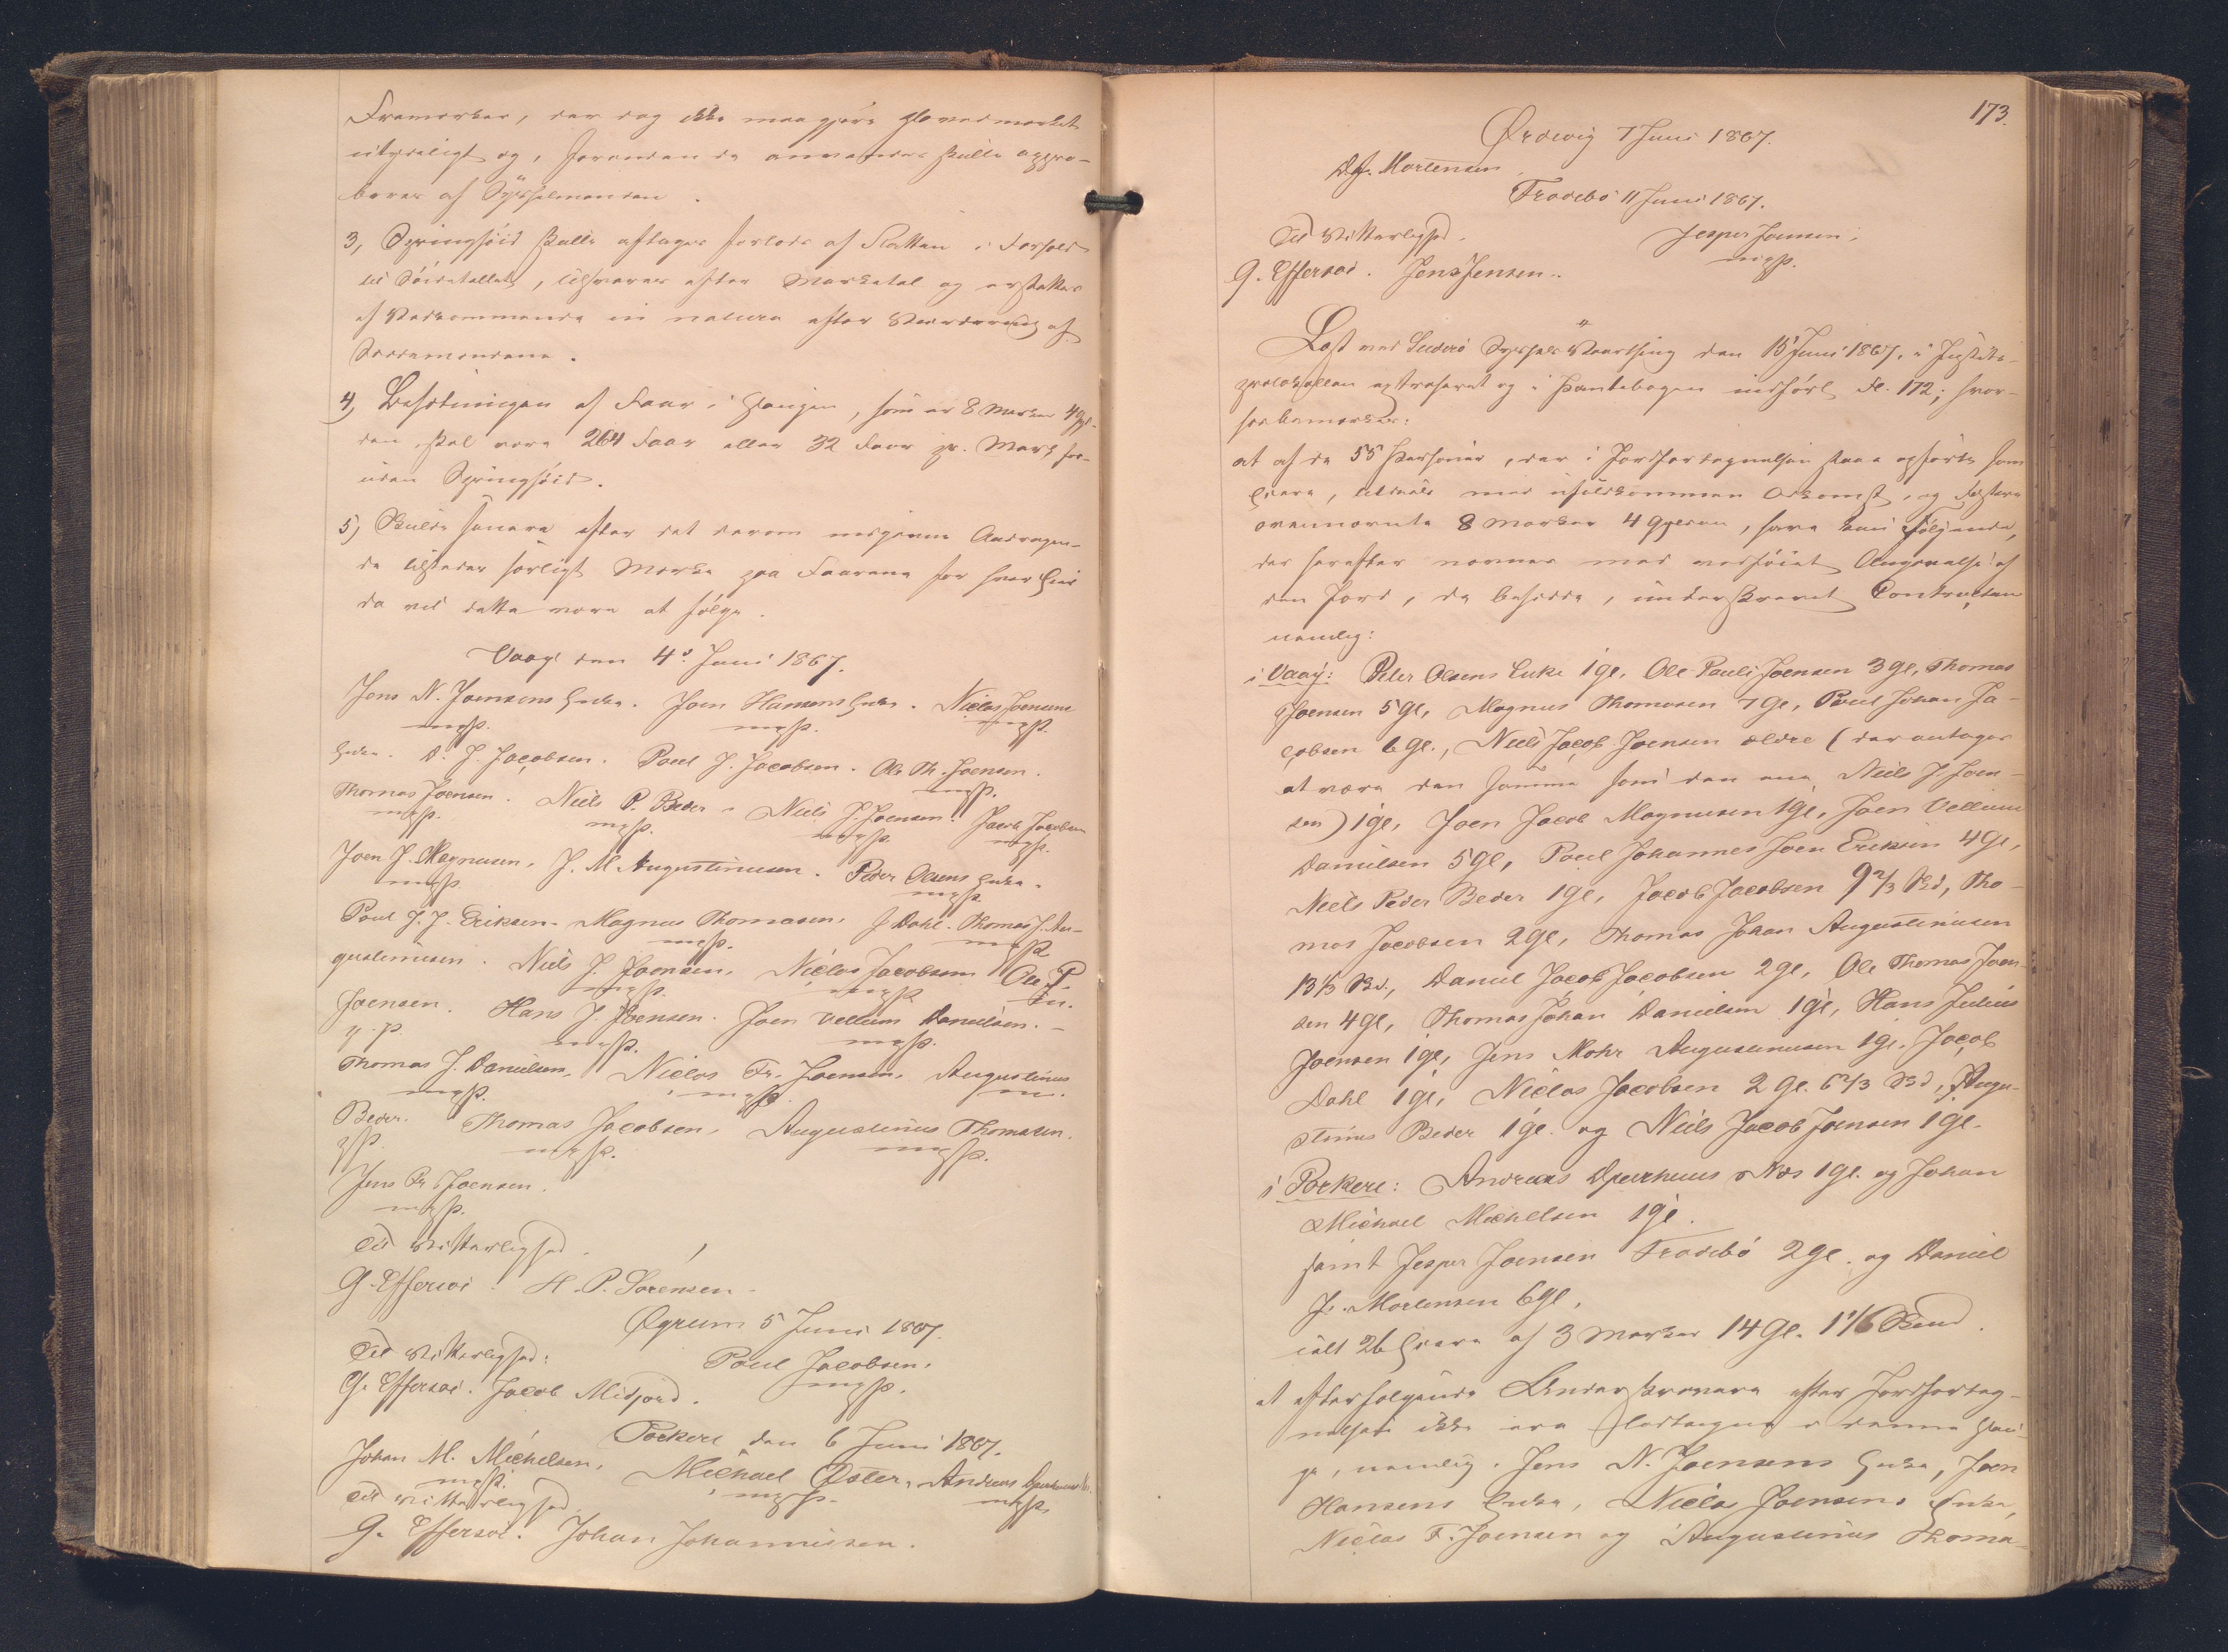 Fremærker, der dog ikke maa gjøre Hovedmærket
utydeligt og, forinden de anvendes skulle appro-
beres af Sysselmanden.
3, Springhöid skulle aftages forlods af Slætten i Forhold
til Söidetallet, tilsvares efter Marketal og erstattes
af Vedkommende in natura efter Vurdering af
4, Besætningen af Faar i Haugen, som er 8 Marker 4 Gyl-
den, skal være 264 Faar eller 32 Faar pr. Mark for-
uden Springhöid.
5, Skulde senere efter det derom indgivne Andragen-
de tilstedes særligt Mærke paa Faarene for hver Eier
da vil dette være at følge.
Vaag den 4de Juni 1867.
Jens N. Joensens Enke. Joen Hansens Enke. Niclas Joensens
mfP. mfP. mfP.
Enke. D. J. Jacobsen. Poul J. Jacobsen. Ole Th. Joensen.
mfP.
Thomas Joensen. Niels P. Beder. Niels J. Joensen. Jacob Jacobsen
mfP. mfP. mfP. mfP.
Joen J. Magnusen. J. M. Augustinusen. Peder Olsens Enke.
mfP. mfP.
Poul J. J. Eriksen. Magnus Thomasen. J Dahl. Thomas J. Au-
mfP. mfP.
gustinusen. Niels J. Joensen. Niclas Jacobsen Ole P.
mfP. mfP. m.
Joensen. Hans J. Joensen. Joen Vellium Danielsen.
f. P. mfP. mfP.
Thomas J. Danielsen. Niclas Fr. Joensen. Augustinus
mfP. mfP. m.
Beder. Thomas Jacobsen. Augustinus Thomasen.
fP. mfP. mfP.
Jens Pr Joensen.
mfP.
Til Vitterlighed.
G. Effersöe. H. P. Sörensen.
Øgrum 5 Juni 1867.
Til Vitterlighed: Poul Jacobsen.
G. Effersöe. Jacob Midjord. mfP.
Porkere den 6 Juni 1867.
Johan M. Michelsen. Michael Öster. Andreas Djurhuus
mfP. mfP. mfP.
Til Vitterlighed
G. Effersöe. Johan Johannissen.
173.
Ørdevig 7 Juni 1867.
D. J. Mortensen
Frodebö 11 Juni 1867.
Til Vitterlighed. Jesper Joensen.
G. Effersöe. Jens Jensen. mfP.
Læst ved Suderö Syssels Vaarthing den 15 Juni 1867, i Justits-
protokollen extraheret og i Pantebogen indført Fl. 172; hvor-
hos bemærkes:
at af de 55 Personer, der i Jordfortegnelsen staae opførte som
Eiere, tildeels med ufuldkommen Adkomst, og Fæstere
ovennævnte 8 Marker 4 Gylden, have kun følgende,
der herefter nævnes med vedføiet Angivelse af
den Jord, de besidde, underskrevet Contracten
nemlig:
i Vaag: Peter Olsens Enke 1 Gl, Ole Pauli Joensen 3 Gl, Thomas
Joensen 5 Gl, Magnus Thomasen 7 Gl, Poul Johan Ja-
cobsen 6 Gl., Niels Jacob Joensen ældre (der antages
at være den samme som den ene Niels J. Joen-
sen) 1 Gl, Joen Jacob Magnusen 1 Gl, Joen Vellium
Danielsen 5 Gl, Poul Johannes Joen Eriksen 4 Gl,
Niels Peder Beder 1 Gl, Jacob Jacobsen 9 2/3 Sk, Tho-
mas Jacobsen 2 Gl, Thomas Johan Augustinusen
13 1/3 Sk., Daniel Jacob Jacobsen 2 Gl, Ole Thomas Joen-
sen 4 Gl, Thomas Johan Danielsen 1 Gl, Hans Julius
Joensen 1 Gl, Jens Mohr Augustinusen 1 Gl. Jacob
Dahl 1 Gl, Niclas Jacobsen 2 Gl. 6 2/3 Sk, Augu-
stinus Beder 1 Gl. og Niels Jacob Joensen 1 Gl.
i Porkere: Andreas Djurhuus Næs 1 Gl. og Johan
Michael Michelsen 1 Gl.
samt Jesper Joensen Frodebö 2 Gl. og Daniel
J. Mortensen 6 Gl,
ialt 26 Eiere af 3 Marker 14 Gl. 1 1/6 Skind.
at efterfølgende Underskrivere efter Jordforteg-
nelsen ikke ere Lodseiere i denne Hau-
ge, nemlig: Jens N. Joensens Enke, Joen
Hansens Enke, Niclas Joensens Enke,
Niclas F. Joensen og Augustinus Thoma-